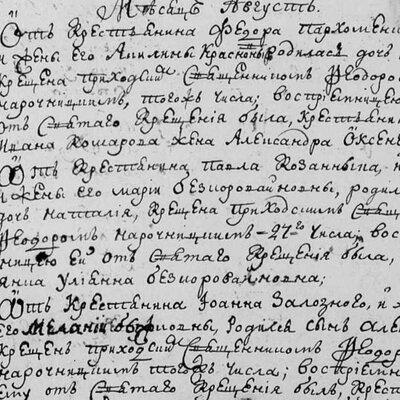 Мѣсяцъ Августъ.
Отъ Крестьянина Ѳедора Пархоменк
и жены его Акилины Красноны родилась дочь
Крещена приходскимъ Священникомъ Ѳеодоро
нарочницкимъ, тогожъ числа; воспріемницею
отъ Святаго Крещенія была, Крестьянин
Ивана Кошарова жена Александра Ѡксен
Ѿтъ Крестьянина Павла Козанныка,
и жены его маріи безпоровайновны, родил
дочь наталія, Крещена Приходскимъ Свяще
Ѳеодоромъ нарочницкимъ 27го числа; вос
ницею Ей отъ Святаго Крещенія была,
янка Уліанна безпоровайновна;
Ѿтъ Крестьянина Іоанна Залозного, и
Его Меланіи родился сынъ Але
Крещенъ приходскимъ Священникомъ Ѳеодо
нарочницкимъ тогожъ числа; воспріемн
ему отъ Святаго Крещенія былъ, Крест